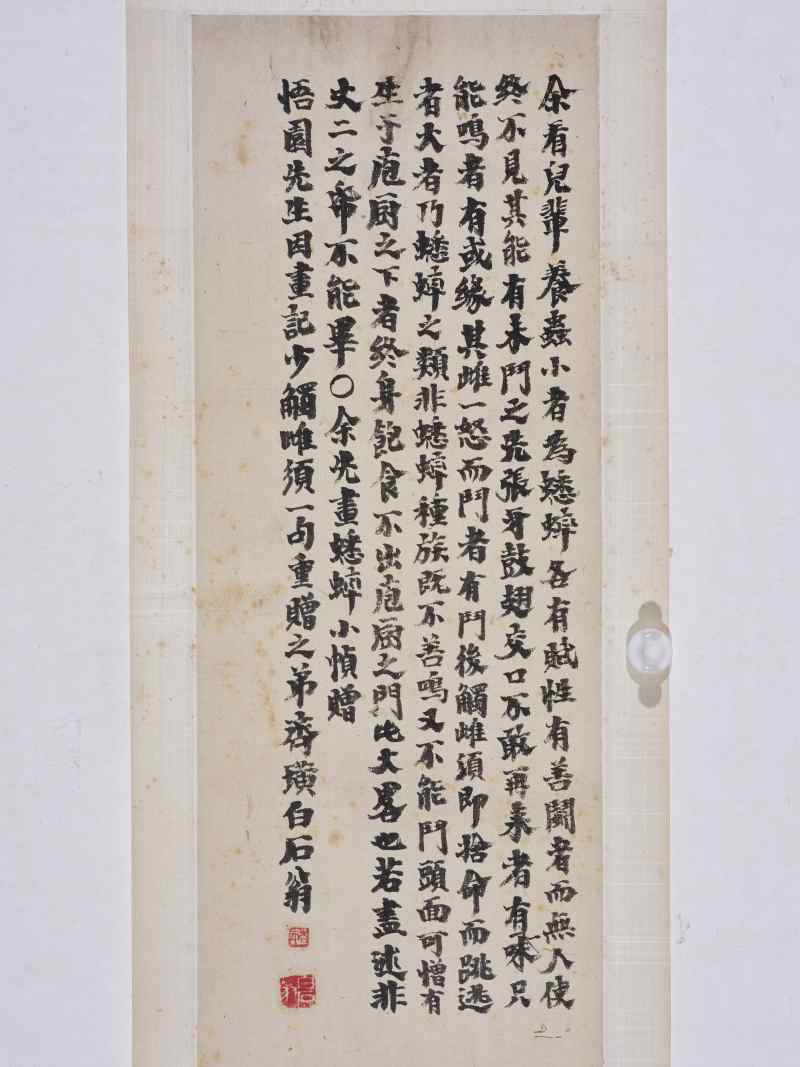 余看兒輩養蟲小者為蟋蟀各有賦性有善鬪者而無人使
終不見其能有未鬥之先張牙鼓翅交口不敢再來者有味只
能鳴者有或緣其雌一怒而鬥者有鬥後觸雌須即捨命而跳逃
者大者乃蟋蟀之類非蟋蟀種族既不善鳴又不能鬥頭面可憎有
生于庖厨之下者終身飽食不出庖厨之門此大畧也若盡述非
丈二之帋不能畢〇余先畫蟋蟀小幀贈
悟園先生因畫記少觸雌須一句重贈之弟齊璜白石翁